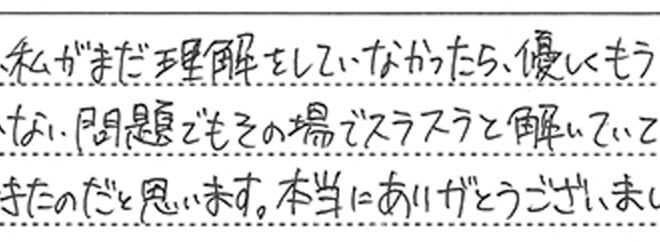 、私がまだ理解をしていなかったら、優しくもう
ない問題でもその場でスラスラと解いていて
きたのだと思います。本当にありがとうございまし